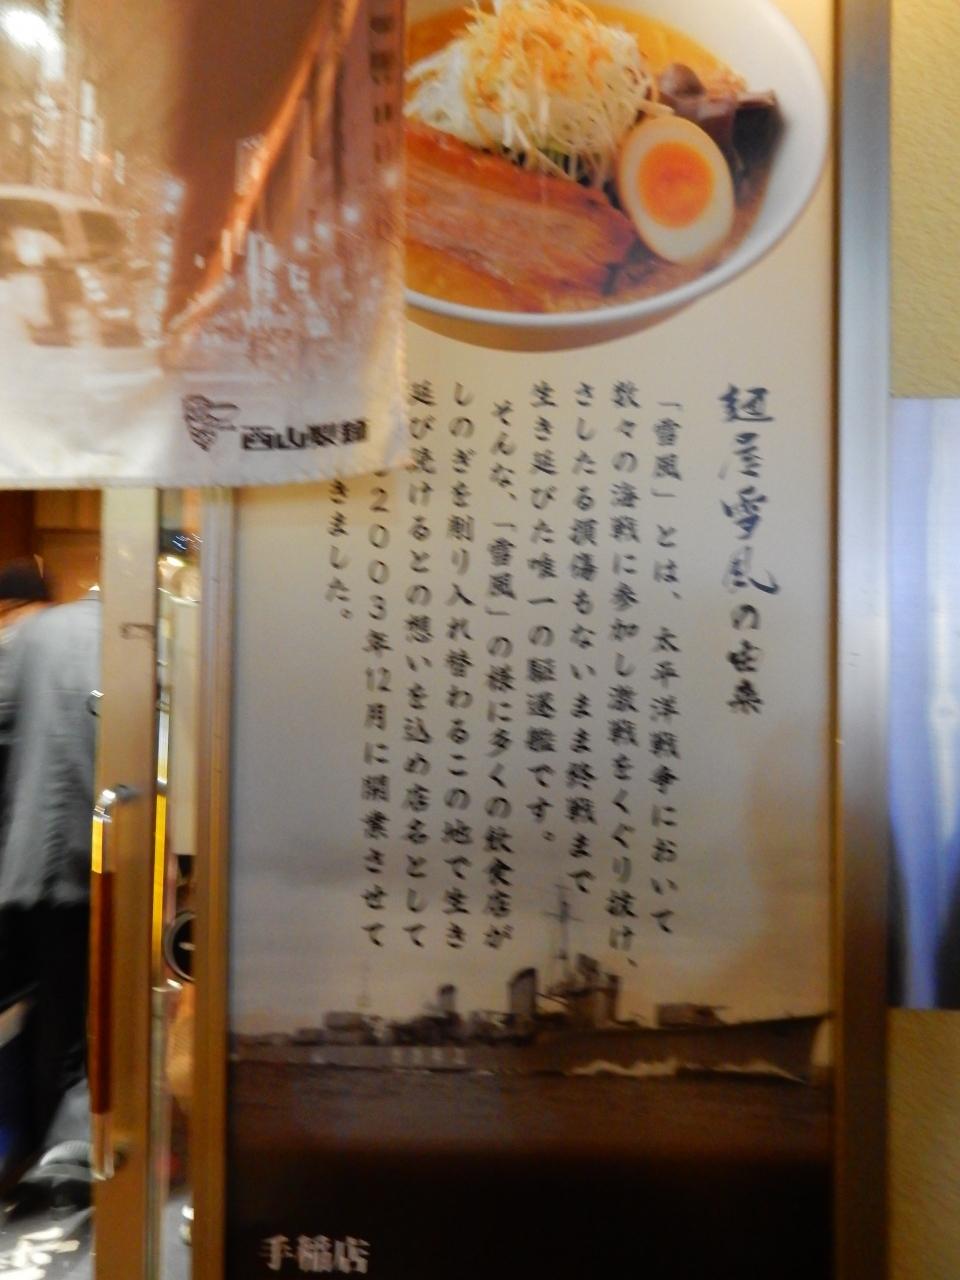 麺屋雪風の由来
「雪風」とは、太平洋戦争において
数々の海戦に参加し激戦をくぐり抜け、
さしたる損傷もないまま終戦まで
生き延びた唯一の駆逐艦です。
そんな、「雪風」の様に多くの飲食店が
しのぎを削り入れ替わるこの地で生き
延び続けるとの想いを込め店名として
2003年12月に開業させて
きました。
西山製麺
手稲店